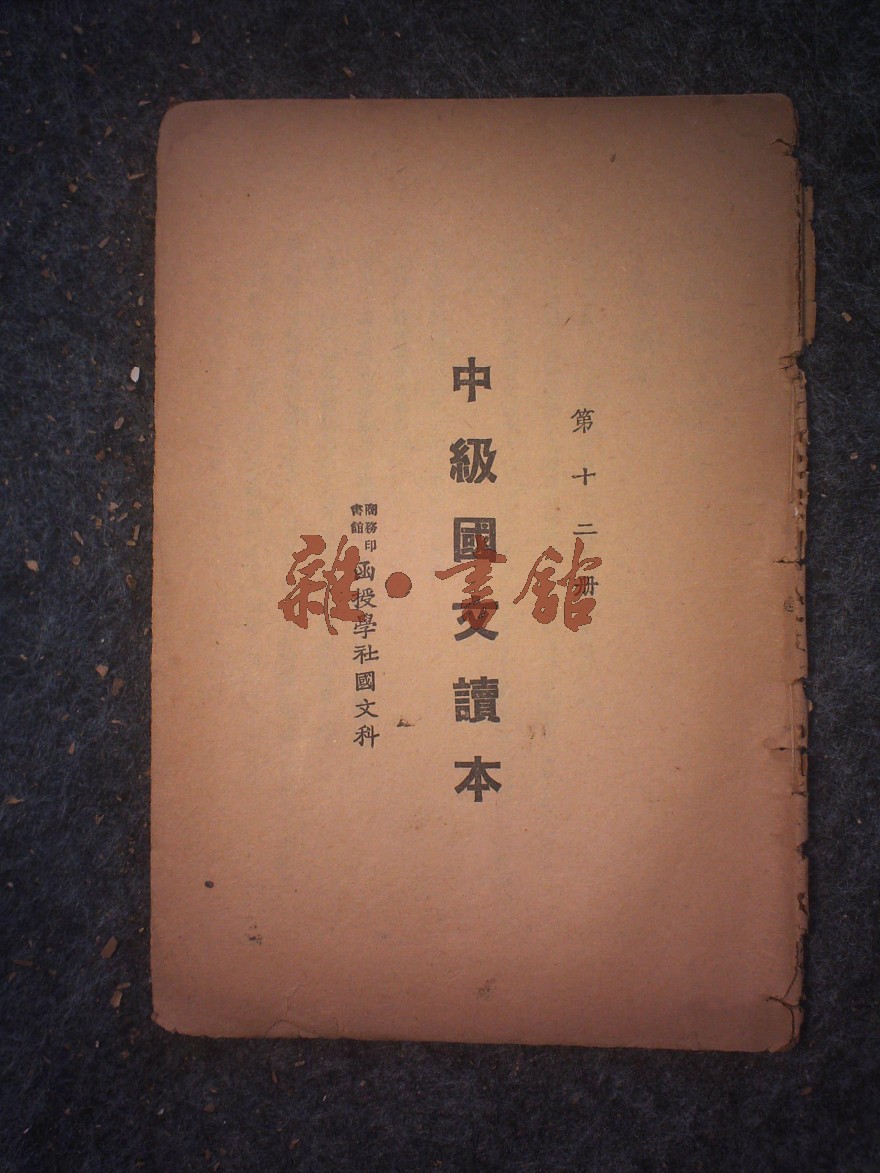 第十二册
中級國文讀本
商務印書館
函授學社國文科
雜·書館